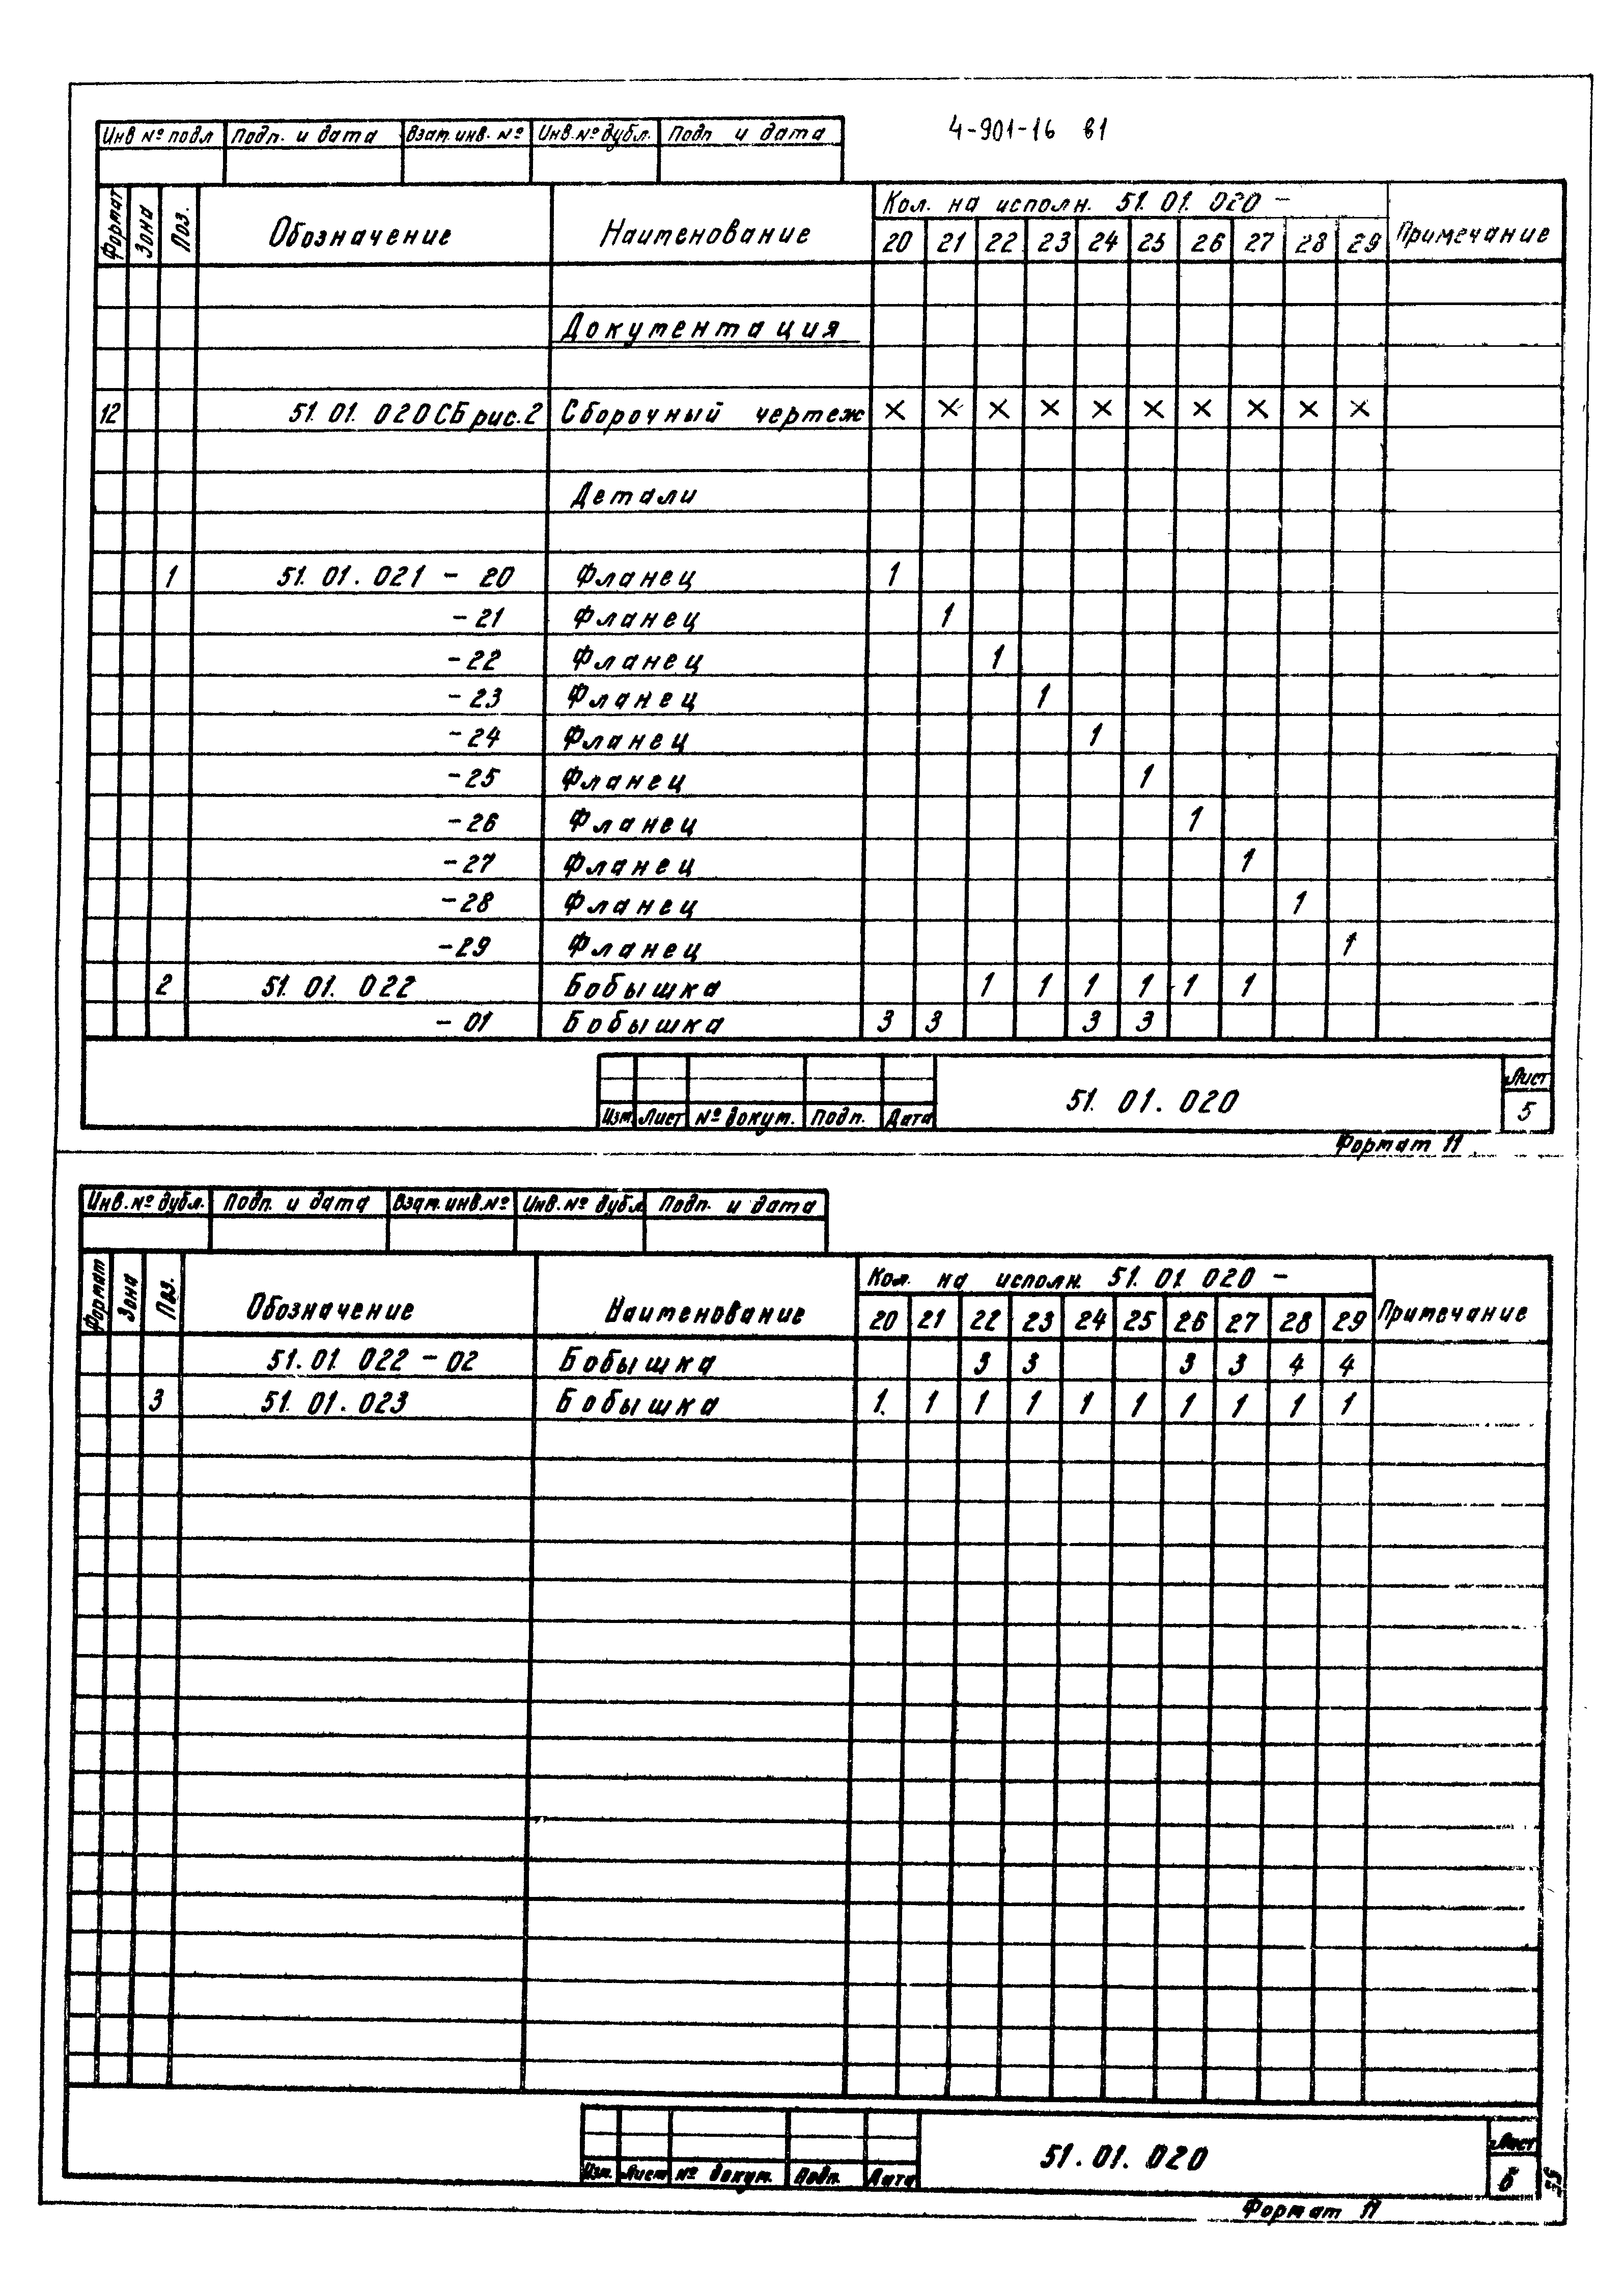 4-901-16 в1
Инв № подл Подп. и дата Взам. инв. № Инв. № дубл. Подп и дата
Формат Зона Поз. Обозначение Наименование Кол. на исполн. 51. 01. 020 - Примечание
20 21 22 23 24 25 26 27 28 29
Документация
12 51. 01. 020 СБ рис. 2 Сборочный чертеж × × × × × × × × × ×
Детали
1 51. 01. 021 - 20 Фланец 1
- 21 Фланец 1
- 22 Фланец 1
- 23 Фланец 1
- 24 Фланец 1
- 25 Фланец 1
- 26 Фланец 1
- 27 Фланец 1
- 28 Фланец 1
- 29 Фланец 1
2 51. 01. 022 Бобышка 1 1 1 1 1 1
- 01 Бобышка 3 3 3 3
Изм. Лист № докум. Подп. Дата 51. 01. 020 Лист 5
Формат 11
Инв. № дубл. Подп. и дата Взам. инв. № Инв. № дубл. Подп. и дата
Формат Зона Поз. Обозначение Наименование Кол. на исполн. 51. 01. 020 - Примечание
20 21 22 23 24 25 26 27 28 29
51. 01. 022 - 02 Бобышка 3 3 3 3 4 4
3 51. 01. 023 Бобышка 1. 1 1 1 1 1 1 1 1 1
Изм. Лист № докум. Подп. Дата 51. 01. 020 Лист 6
Формат 11